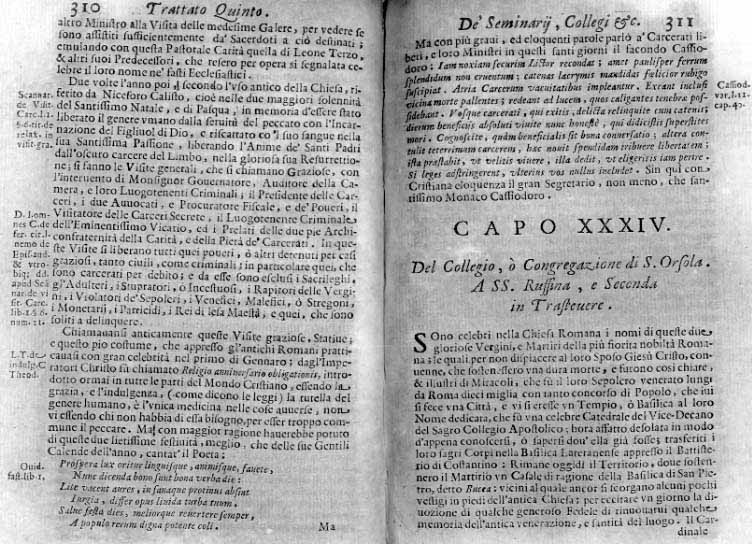 310 Trattato Quinto.
altro Ministro alla Visita delle medesime Galere, per vedere se
sono assistiti sufficientemente da' Sacerdoti a ciò destinati;
emulando con questa Pastorale Carità quella di Leone Terzo,
& altri suoi Predecessori, che resero per opera si segnalata ce-
lebre il loro nome ne' fasti Ecclesiastici.
Due volte l'anno poi, secondo l'uso antico della Chiesa, ri-
ferito da Niceforo Calisto, cioè nelle due maggiori solennità
del Santissimo Natale, e di Pasqua, in memoria d'essere stato
liberato il genere vmano dalla seruitù del peccato con l'Incar-
nazione del Figliuol di Dio, e riscattato co'l suo sangue nella
sua Santissima Passione, liberando l'Anime de' Santi Padri
dall'oscuro carcere del Limbo, nella gloriosa sua Resurrettio-
ne; si fanno le Visite generali, che si chiamano Graziose, con
l'interuento di Monsignor Gouernatore, Auditore della Ca-
mera, e loro Luogotenenti Criminali, il Presidente delle Car-
ceri, i due Auuocati, e Procuratore Fiscale, e de' Poueri, il
Visitatore delle Carceri Secrete, il Luogotenente Criminale
dell'Eminentissimo Vicario, ed i Prelati delle due pie Archi-
confraternità della Carità, e della Pietà de' Carcerati. In que-
ste Visite si liberano tutti quei poueri, ò altri detenuti per casi
graziosi, tanto ciuili, come criminali; in particolare quei, che
sono carcerati per debito; e da esse sono esclusi i Sacrileghi,
gl'Adulteri, i Stupratori, ò Incestuosi, i Rapitori delle Vergi-
ni, i Violatori de' Sepolcri, i Venefici, Malefici, ò Stregoni,
i Monetarij, i Patricidi, i Rei di lesa Maestà, e quei, che sono
soliti a delinquere.
Chiamauansi anticamente queste Visite graziose, Statiue;
e questo pio costume, che appresso gl'antichi Romani pratti-
cauasi con gran celebrità nel primo di Gennaro; dagl'Impe-
ratori Christo fù chiamato Religio anniuersario obligationis, intro-
dotto ormai in tutte le parti del Mondo Cristiano, essendo la
grazia, e l'indulgenza, (come dicono le leggi) la tutella del
genere humano, è l'vnica medicina nelle cose auuerse, non
vi essendo chi non habbia di essa bisogno, per esser troppo com-
mune il peccare. Ma con maggior ragione hauerebbe potuto
di queste due lietissime festiuità, meglio, che delle sue Gentili
Calende dell'anno, cantar'il Poeta:
Prospera lux oritur linguisque, animisque, fauete,
Nunc dicenda bono sunt bona verba die:
Lite vacent aures, insanaque protinus absint
Iurgia, differ opus liuida turba tuum.
Salue festa dies, meliorque reuertere semper,
A populo rerum digna potente coli.
Ma
Scannar.
de Visit.
relax. in
visit. gra.
L.T. de
indulg. C.
Theod.
Ouid.
fast. lib. 1.
De' Seminarij, Collegi &c. 311
Ma con più graui, ed eloquenti parole parlò a' Carcerati li-
beri, e loro Ministri in questi santi giorni il facondo Cassio-
doro: Iam noxiam securim Lictor recondas; amet paulisper ferrum
splendidum non cruentum; catenas lacrymis madidas fœlicior rubigo
suscipiat. Atria Carcerum vacuitatibus impleantur. Exeant inclusi
vicina morte pallentes; redeant ad lucem, quos caligantes tenebræ pos-
sidebant. Vosque carcerati, qui exitis, delicta relinquite cum catenis;
dierum beneficijs absoluti viuite nunc honestè, qui didicistis superstites
mori. Cognoscite, quàm beneficialis sit bona conuersatio; altera con-
tulit teterrimum carcerem, hæc nouit spendidam tribuere libertatem;
ista præstabit, vt velitis viuere, illa dedit, vt eligeritis iam perire.
Si leges adstringerent, vlterius vos nullus includet. Sin quì con
Cristiana eloquenza il gran Segretario, non meno, che san-
tissimo Monaco Cassiodoro.
Cassiod.
var. l. 12.
cap. 40.
CAPO XXXIV.
Del Collegio, ò Congregazione di S. Orsola.
A SS. Ruffina, e Seconda
in Trasteuere.
SOno celebri nella Chiesa Romana i nomi di queste due
gloriose Vergini, e Martiri della più fiorita nobiltà Roma-
na; le quali per non dispiacere al loro Sposo Giesù Cristo, con-
uenne, che sostenessero vna dura morte, e furono così chiare,
& illustri di Miracoli, che fù al loro Sepolcro venerato lungi
da Roma dieci miglia con tanto concorso di Popolo, che iui
si fece vna Città, e vi si eresse vn Tempio, ò Basilica al loro
Nome dedicata, che fù vna celebre Catedrale del Vice-Decano
del Sagro Collegio Apostolico; hora affatto desolata in modo
d'appena conoscersi, ò sapersi dou'ella già fosse; trasferiti i
loro sagri Corpi nella Basilica Lateranense appresso il Battiste-
rio di Costantino: Rimane oggidì il Territorio, doue sosten-
nero il Martirio vn Casale di ragione della Basilica di San Pie-
tro, detto Bucea: vicini al quale ancor si scorgano alcuni pochi
vestigi in piedi dell'antica Chiesa: per eccitare vn giorno la di-
uozione di qualche generoso Fedele di rinouarui qualche
memoria dell'antica venerazione, e santità del luogo. Il Car-
dinale